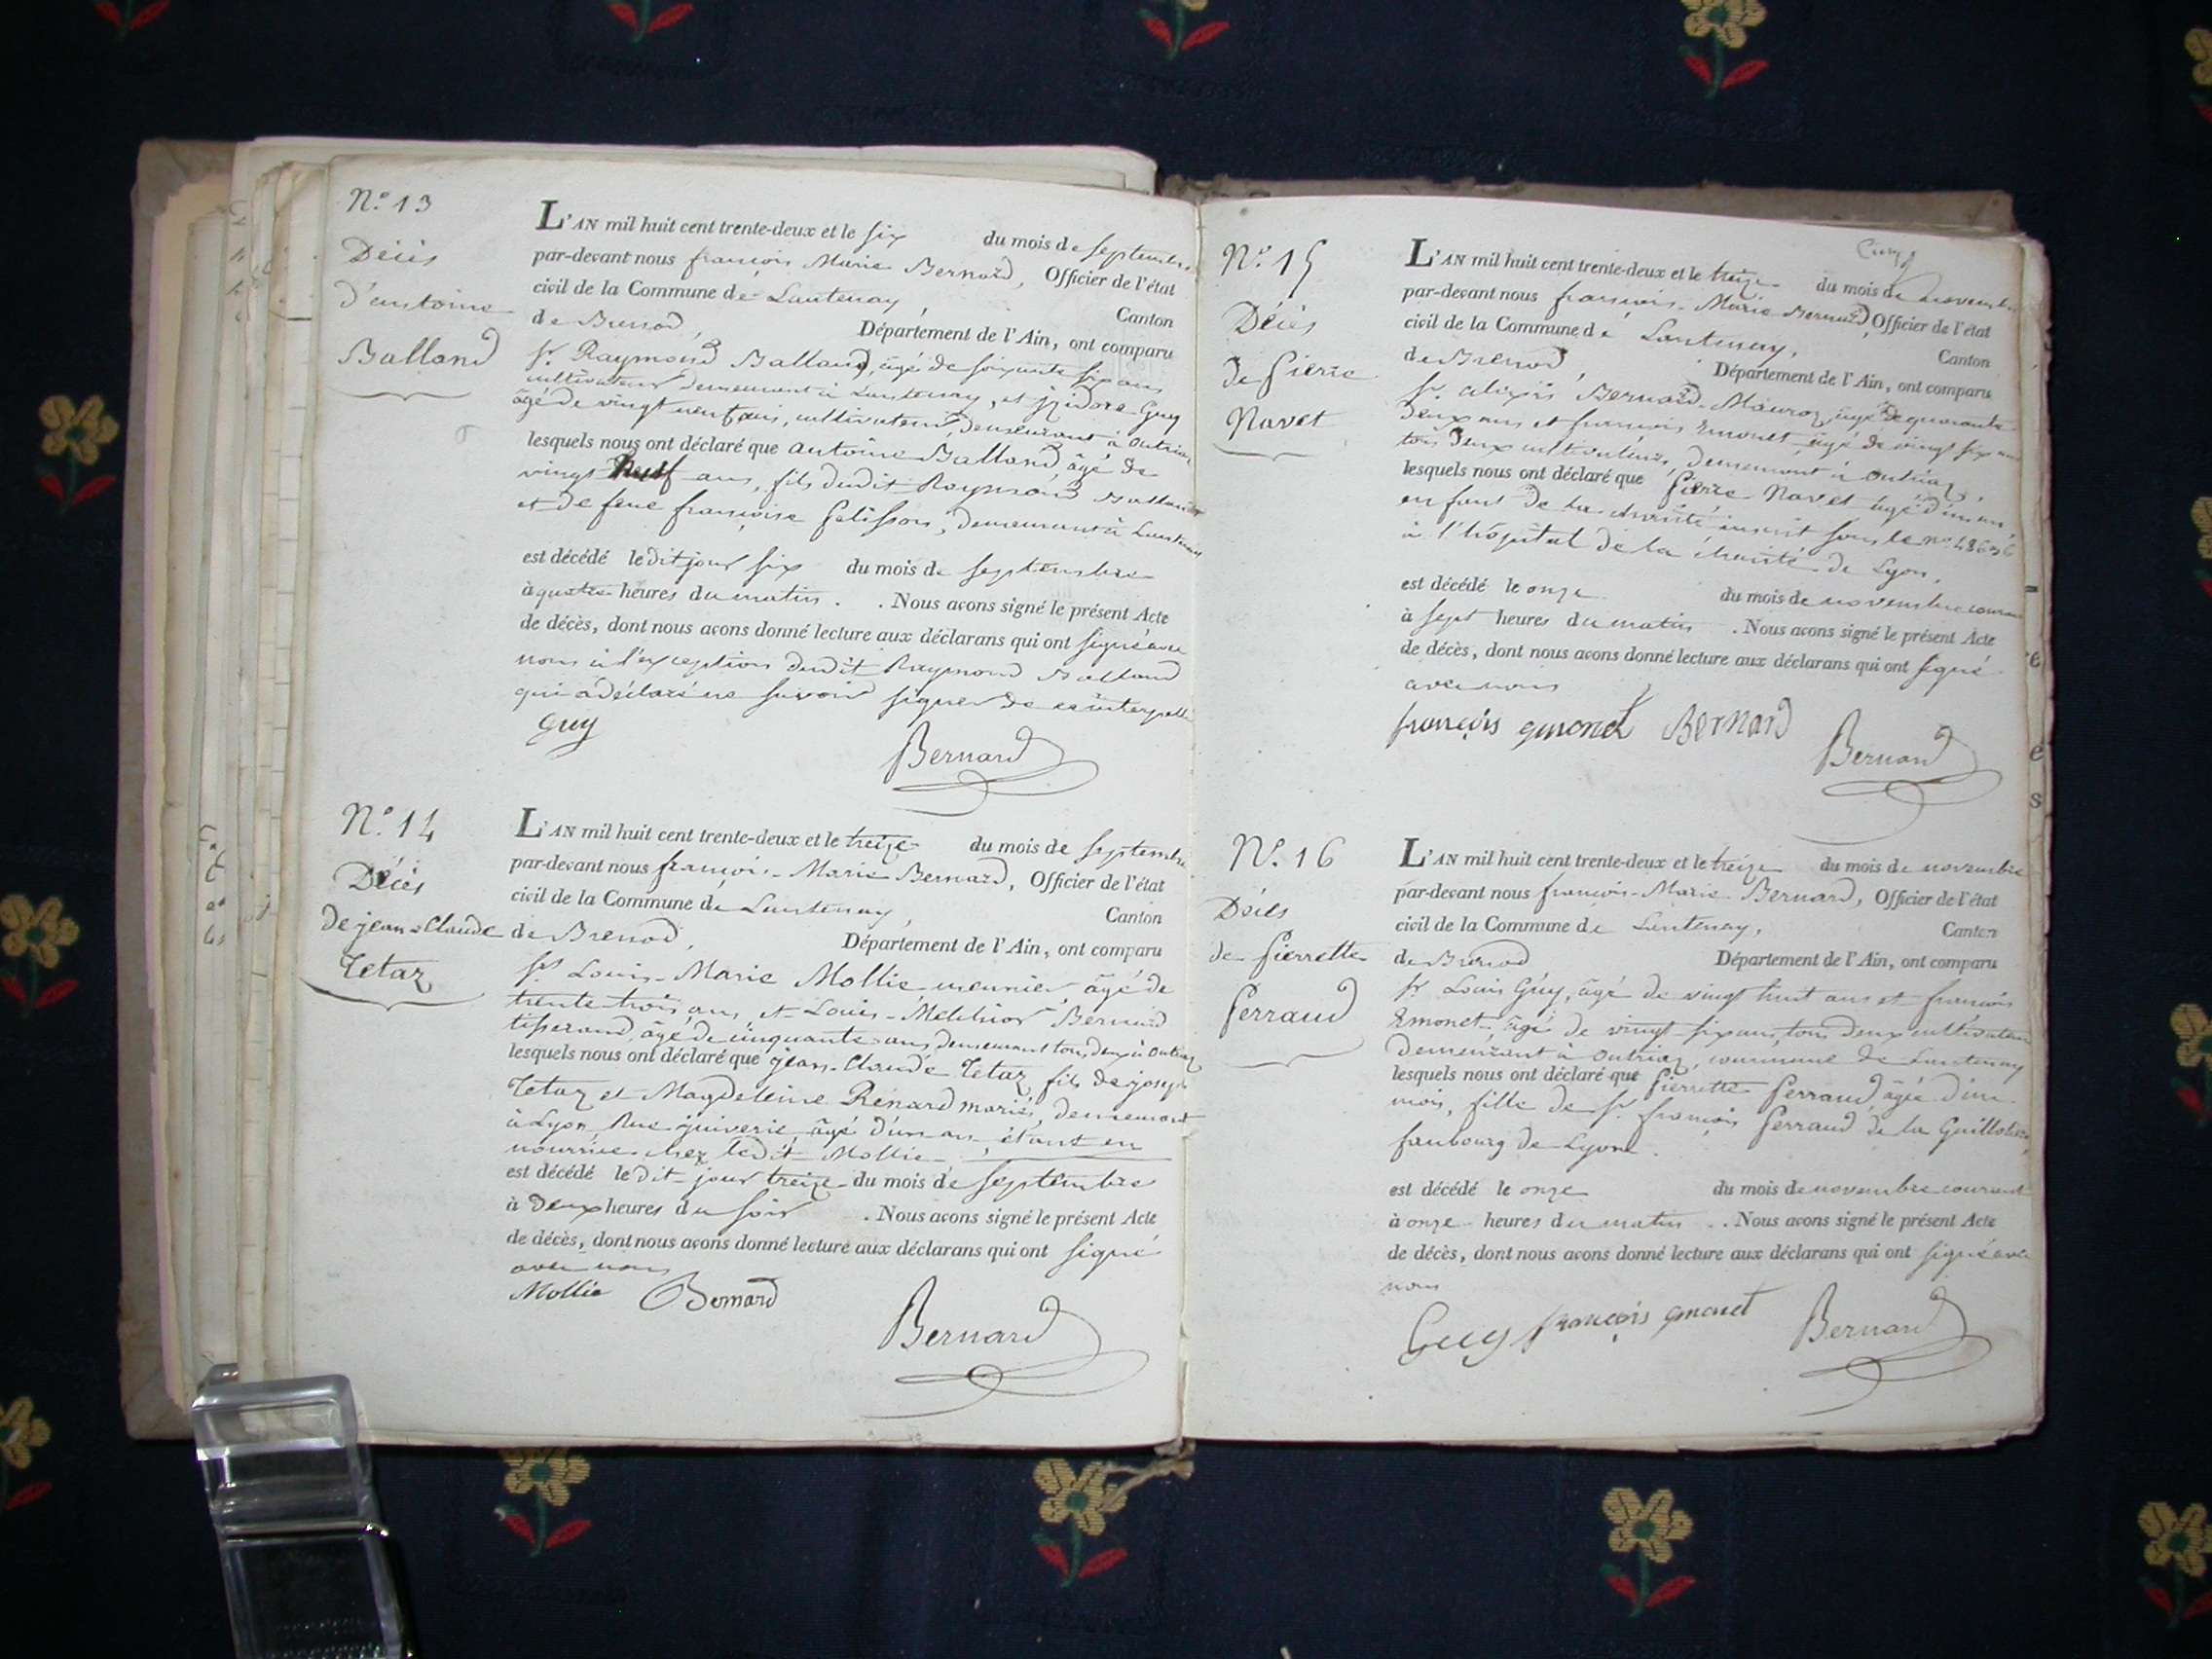 N.° 13
Décès
d'antoine
Balland
L'AN mil huit cent trente-deux et le six du mois de septembre
par-devant nous françois Marie Bernard, Officier de l'état
civil de la Commune de Lantenay, Canton
de Brenod, Département de l'Ain, ont comparu
Sr. Raymond Balland, âgé de soixante six ans
cultivateur demeurant à Lantenay, et jzidore Guy
âgé de vingt neuf ans, cultivateur, demeurant à Outriaz
lesquels nous ont déclaré que antoine Balland âgé de
vingt neuf ans, fils dudit Raymond Balland
et de feue françoise Pelisson, demeurant à Lantenay
est décédé ledit jour six du mois de septembre
à quatre heures du matin. . Nous avons signé le présent Acte
de décès, dont nous avons donné lecture aux déclarans qui ont signé avec
nous à l'exception dudit Raymond Balland
qui a déclaré ne savoir signer de ce interpellé
Guy
Bernard
N.° 14
Décès
de jean-Claude
Tetaz
L'AN mil huit cent trente-deux et le treize du mois de septembre
par-devant nous françois-Marie Bernard, Officier de l'état
civil de la Commune de Lantenay, Canton
de Brenod, Département de l'Ain, ont comparu
Srs Louis-Marie Mollie meunier âgé de
trente trois ans, et Louis-Melchior Bernard
tisserand, âgé de cinquante ans demeurant tous deux à Outriaz
lesquels nous ont déclaré que jean-Claude Tetaz, fils de joseph
Tetaz et Magdeleine Renard mariés, demeurant
à Lyon Rue juiverie, âgé d'un an, étant en
nourrice chez ledit Mollie
est décédé ledit jour treize du mois de septembre
à deux heures du soir . Nous avons signé le présent Acte
de décès, dont nous avons donné lecture aux déclarans qui ont signé
avec nous
Mollie Bernard
Bernard
N.° 15
Décès
de Pierre
Navet
L'AN mil huit cent trente-deux et le treize du mois de novembre
par-devant nous françois-Marie Bernard, Officier de l'état
civil de la Commune de Lantenay, Canton
de Brenod, Département de l'Ain, ont comparu
Sr. alexis Bernard-Mauroz, âgé de quarante
deux ans et françois Emonet, âgé de vingt six ans
tous deux cultivateurs, demeurant à Outriaz,
lesquels nous ont déclaré que Pierre Navet âgé d'un an
enfant de la charité inscrit sous le n.°
à l'hôpital de la charité de Lyon,
est décédé le onze du mois de novembre courant
à sept heures du matin . Nous avons signé le présent Acte
de décès, dont nous avons donné lecture aux déclarans qui ont signé
avec nous
françois emonet Bernard
Bernard
N.° 16
Décès
de Pierrette
Perraud
L'AN mil huit cent trente-deux et le treize du mois de novembre
par-devant nous françois-Marie Bernard, Officier de l'état
civil de la Commune de Lantenay, Canton
de Brenod Département de l'Ain, ont comparu
Sr. Louis Guy, âgé de vingt huit ans et françois
Emonet, âgé de vingt six ans, tous deux cultivateurs
demeurant à Outriaz, commune de Lantenay
lesquels nous ont déclaré que Pierrette Perraud, âgée d'un
mois, fille de Sr. françois Perraud de la Guillotière,
faubourg de Lyon.
est décédé le onze du mois de novembre courant
à onze heures du matin . . Nous avons signé le présent Acte
de décès, dont nous avons donné lecture aux déclarans qui ont signé avec
nous
Guy françois emonet Bernard